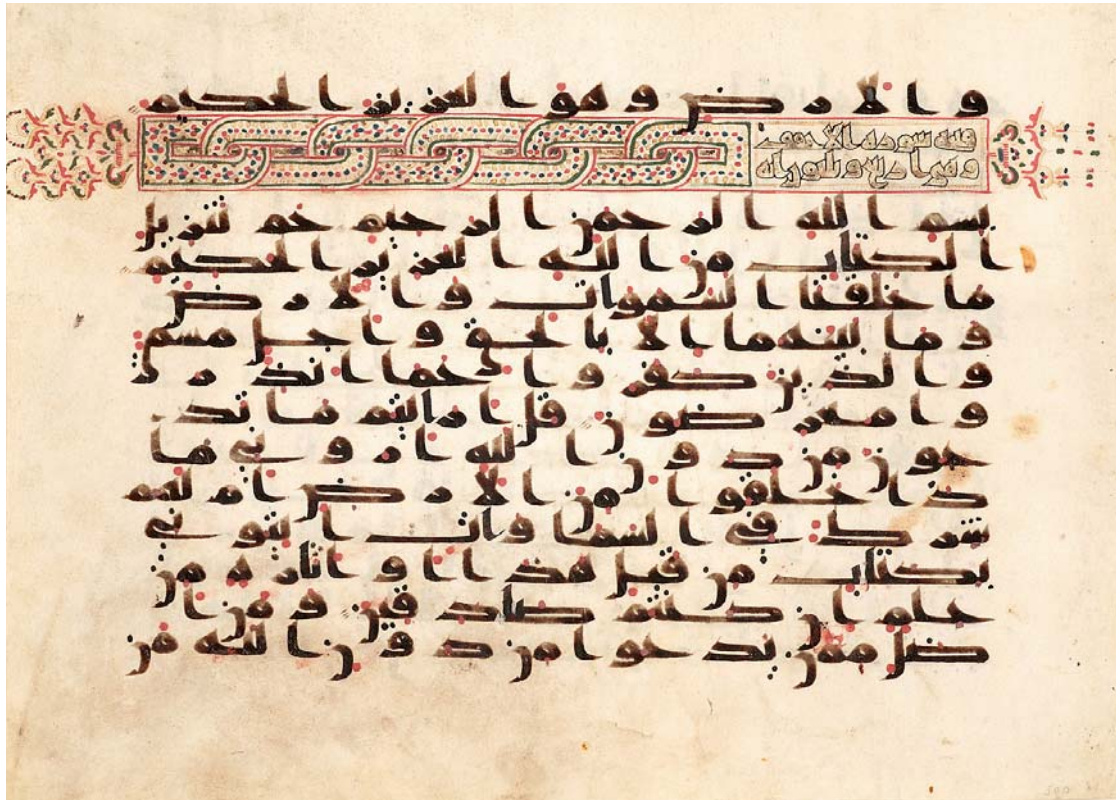 والارض وهو العزيز الحكيم
سورة الاحقف
بسم الله الرحمن الرحيم حم تنزيل
الكتاب من الله العزيز الحكيم
ما خلقنا السموات والارض
وما بينهما الا بالحق واجل مسمى
والذين كفروا عما انذر
وا معرضون قل ارايتم ما تد
عون من دون الله اروني ما
ذا خلقوا من الارض ام لهم
شرك في السموات ايتوني
بكتاب من قبل هذا او اثارة من
علم ان كنتم صادقين ومن ا
ضل ممن يدعوا من دون الله من